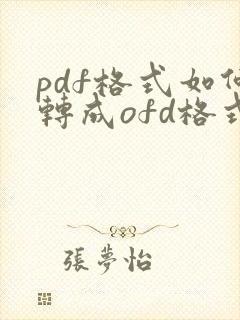 pdf格式如何
轉成ofd格式
張夢怡